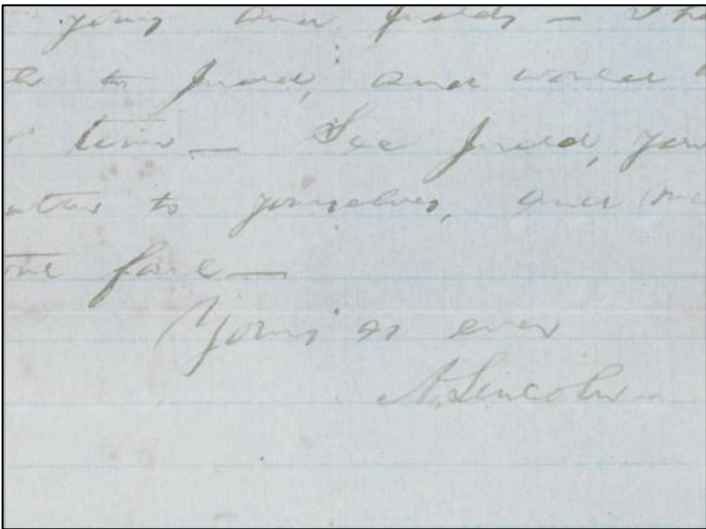 yours and Judds — I ha
to Judd, and would
time — See Judd, you
atter to yourselves, and
ont fail —
Yours as ever
A. Lincoln —